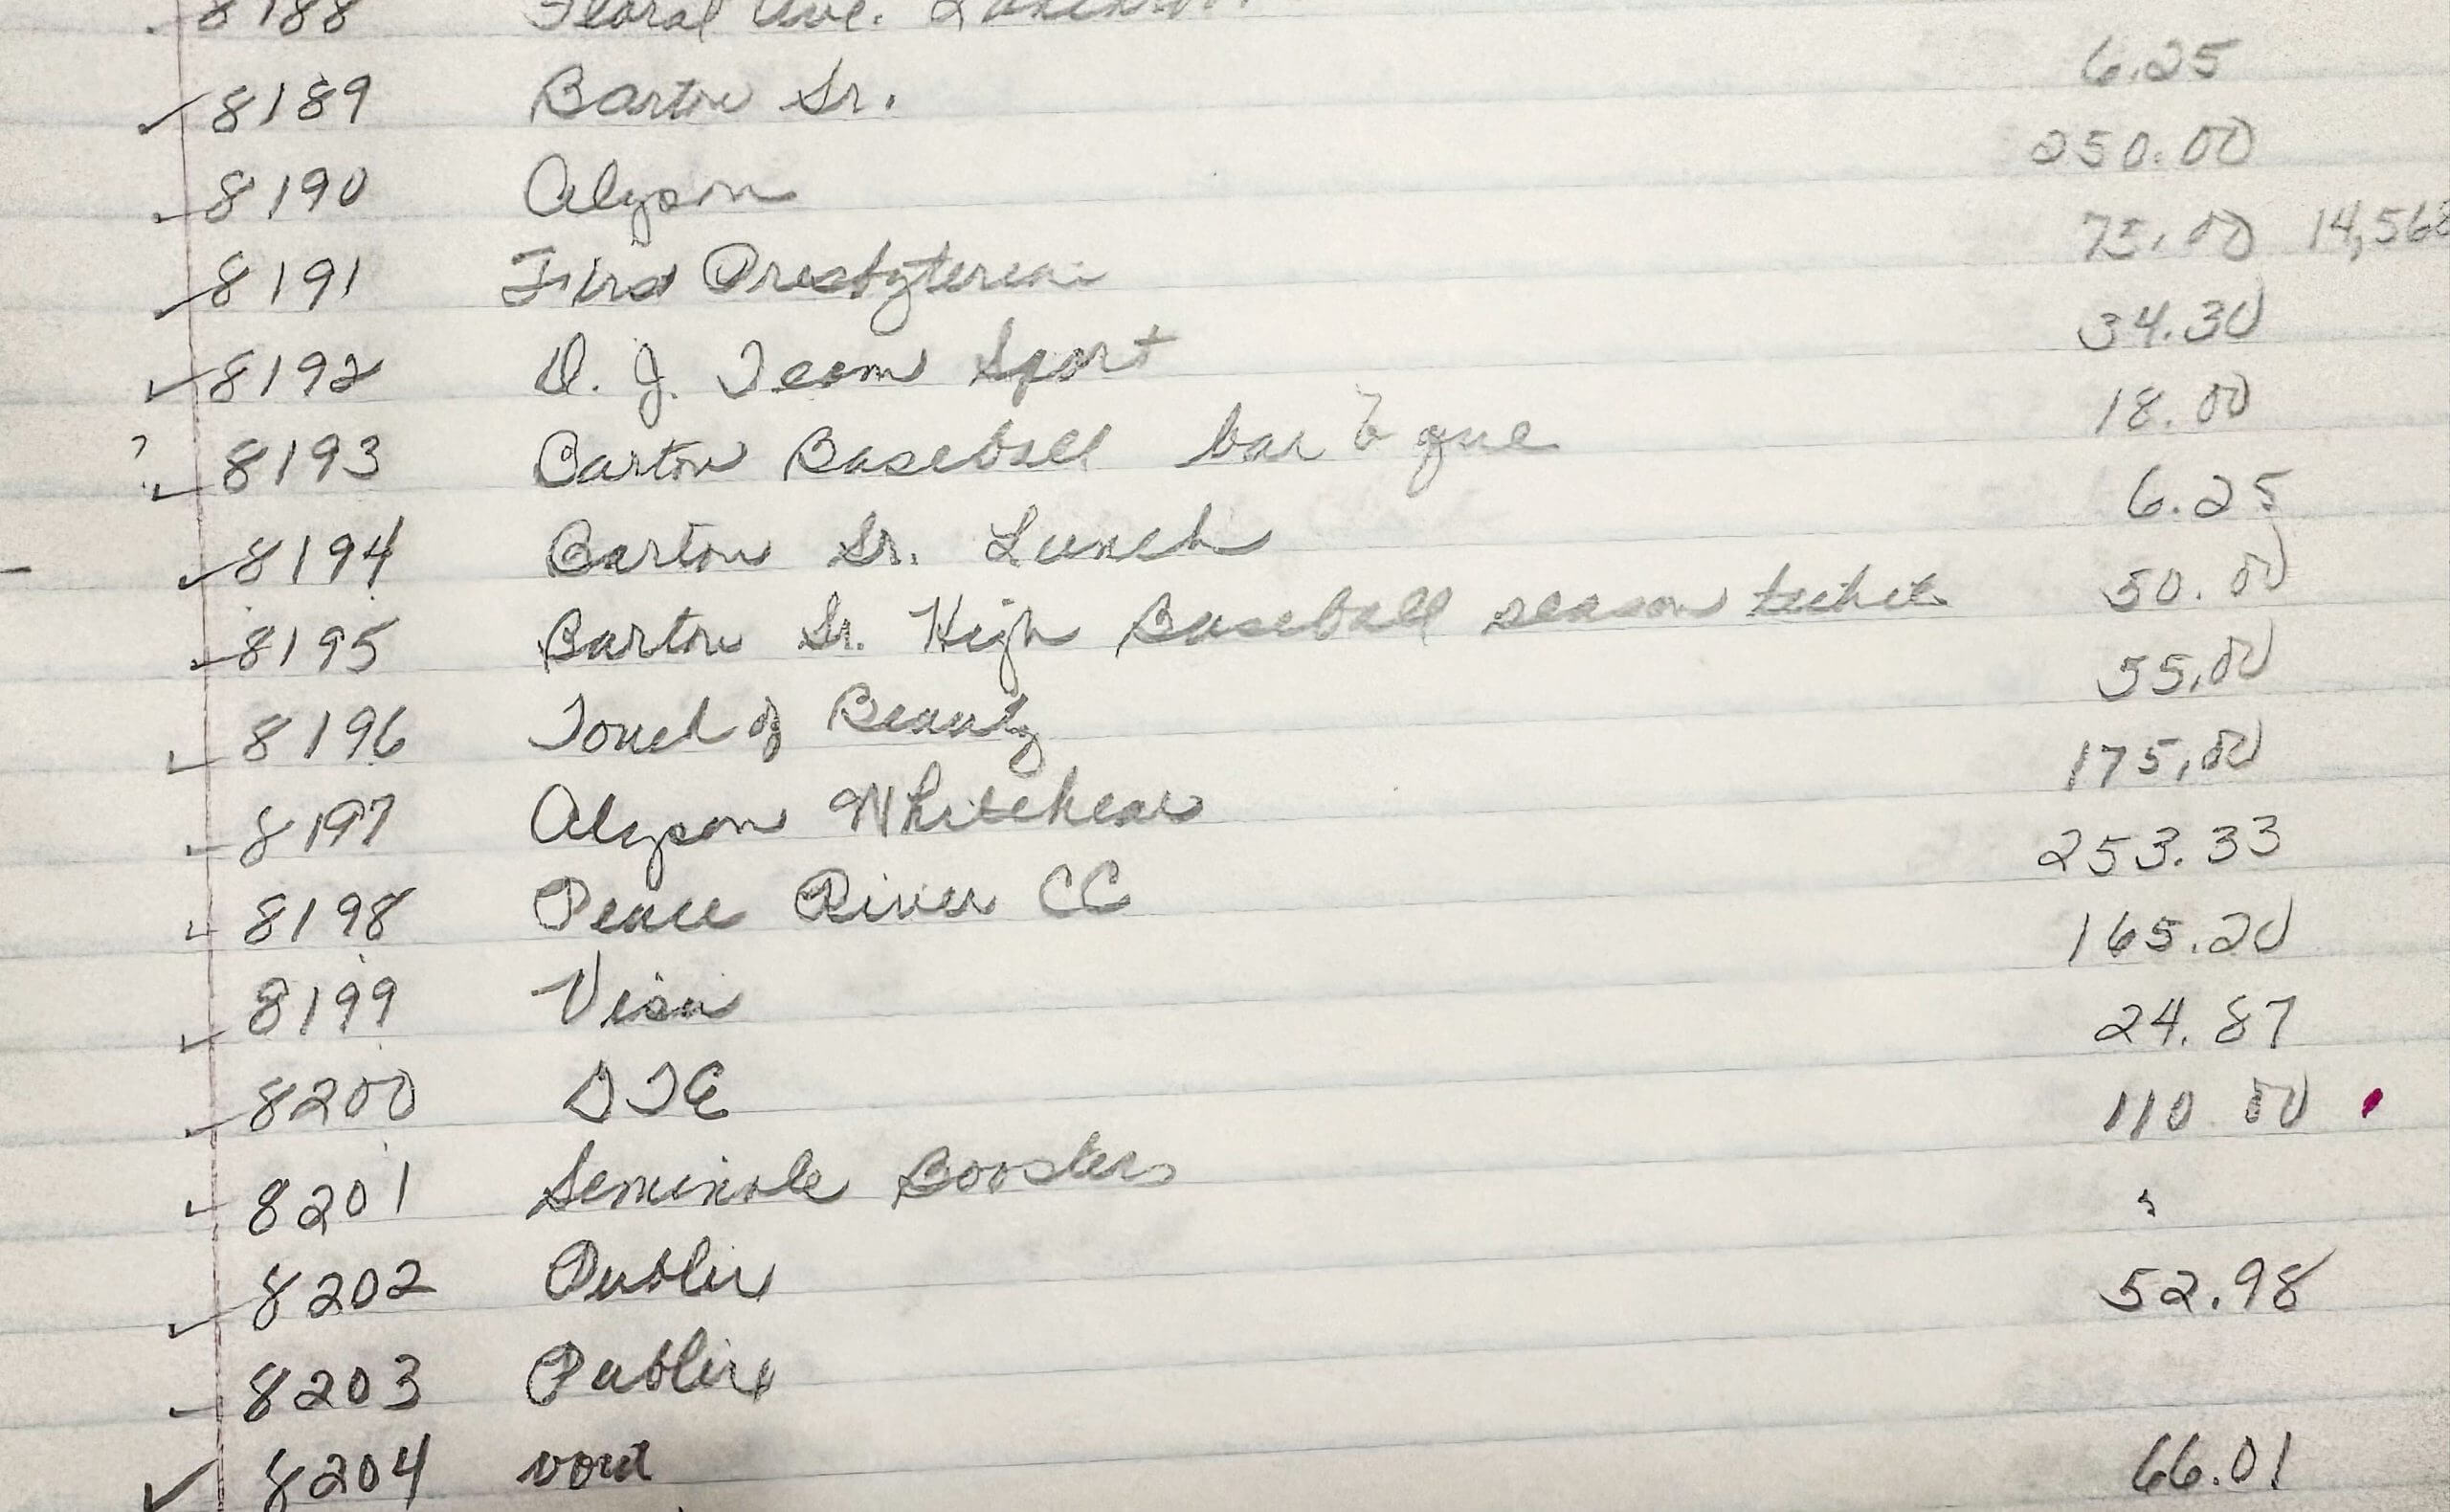 8188 Floral Ave.
✓ 8189 Bartow Sr. 6.25
✓ 8190 Alyson 250.00
✓ 8191 First Presbyterian 75.00 14,568
✓ 8192 D. J. Team Sport 34.30
? ✓ 8193 Bartow Baseball bar b que 18.00
✓ 8194 Bartow Sr. Lunch 6.25
✓ 8195 Bartow Sr. High Baseball season ticket 50.00
✓ 8196 Touch of Beauty 55.00
✓ 8197 Alyson Whitehead 175.00
✓ 8198 Peace River CC 253.33
✓ 8199 Visa 165.20
✓ 8200 GTE 24.87
✓ 8201 Seminole Boosters 110.00
✓ 8202 Publix
✓ 8203 Publix 52.98
✓ 8204 void
66.01